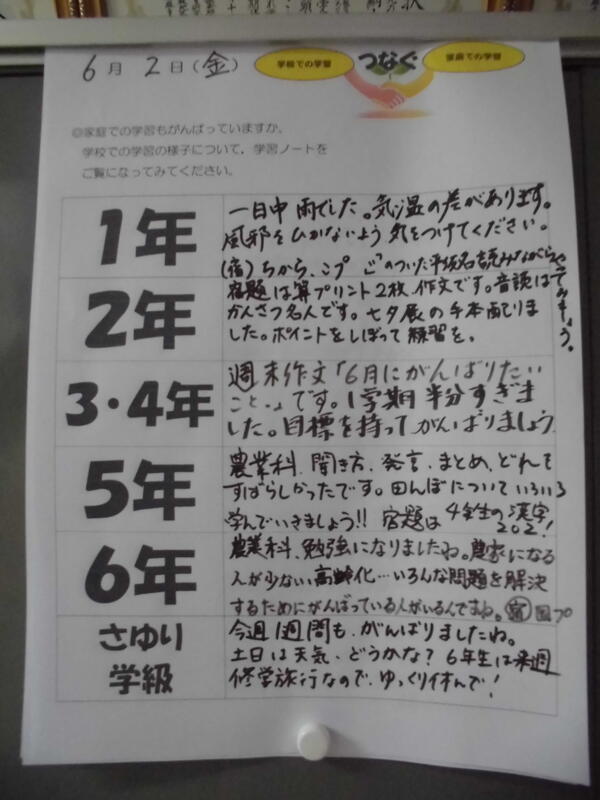 6月2日(金)
学校での学習
つなぐ
家庭での学習
◎家庭での学習もがんばっていますか。
学校での学習の様子について、学習ノートを
ご覧になってみてください。
1年
一日中雨でした。気温の差があります。
風邪をひかないよう気をつけてください。
(宿)ちから、こプ
のついた平仮名読みながら
やってみましょう。
2年
宿題は算プリント2枚、作文です。音読は
かんさつ名人です。七夕展の手本配りま
した。ポイントをしぼって練習を。
3・4年
週末作文「6月にがんばりたい
こと。」です。1学期半分すぎま
した。目標を持ってがんばりましょう
5年
農業科、聞き方、発言、まとめ、どれも
すばらしかったです。田んぼについていろいろ
学んでいきましょう!!宿題は4年生の漢字
202!
6年
農業科、勉強になりましたね。農家になる
人が少ない高齢化…いろんな問題を解決
するためにがんばっている人がいるんですね。宿国プ
さゆり
学級
今週1週間も、がんばりましたね。
土日は天気、どうかな?6年生は来週
修学旅行なので、ゆっくり休んで!